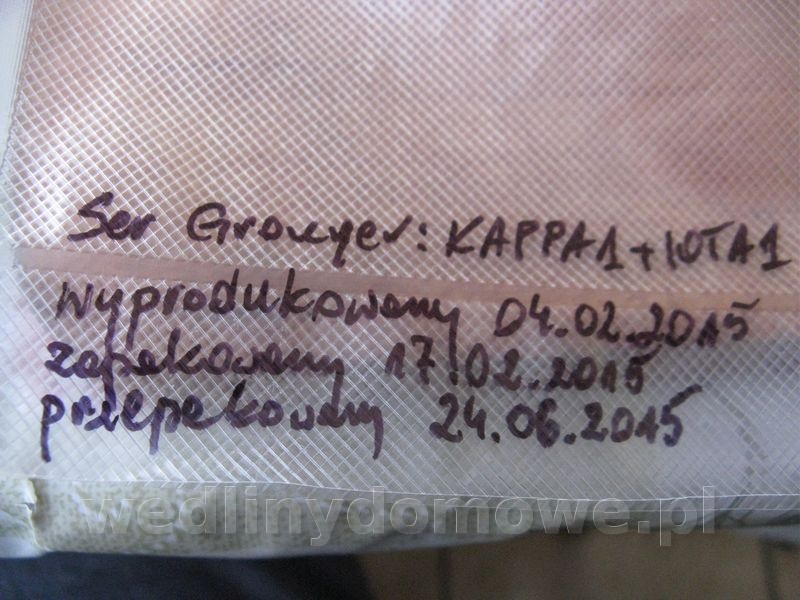 Ser Grouyer: KAPPA1 + IOTA1
wyprodukowany 04.02.2015
zapakowany 17.02.2015
przepakowany 24.06.2015
wedlinydomowe.pl